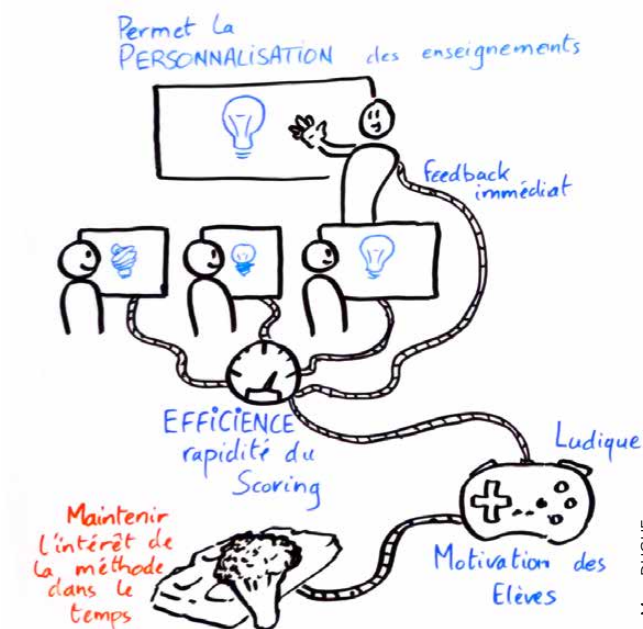 Permet la
PERSONNALISATION des enseignements
Feedback
immédiat
EFFICIENCE
rapidité du
Scoring
Ludique
Motivation des
Elèves
Maintenir
l'intérêt de
la méthode
dans le
temps